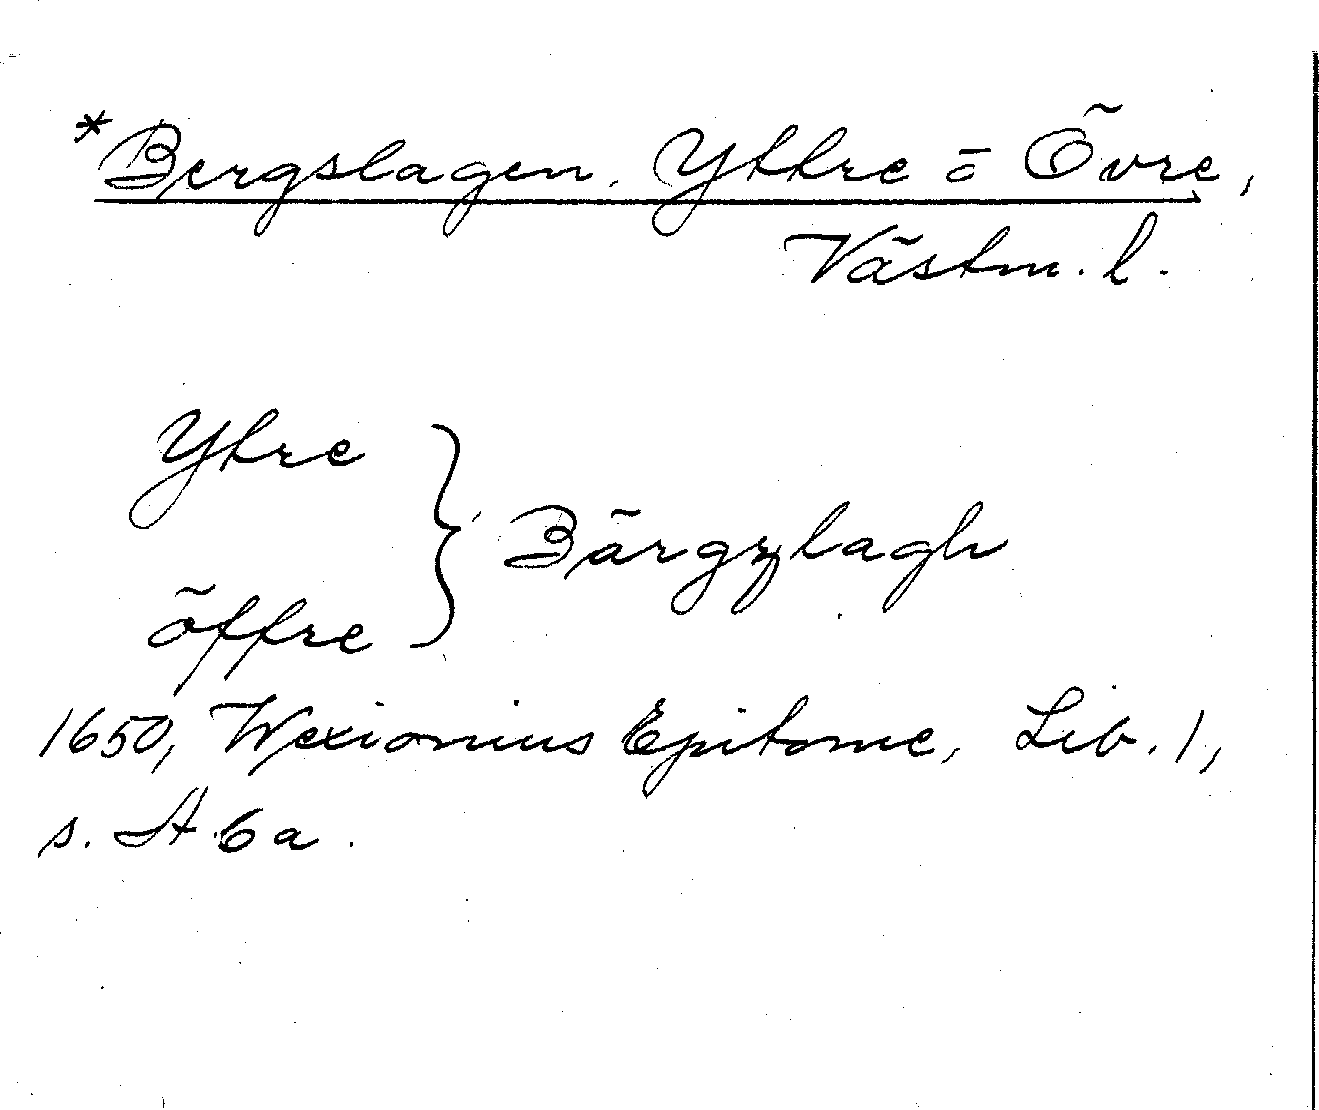 *Bergslagen, Yttre o Övre,
Västm. l.
Ytre
} Bärgzlagh
öffre
1650, Wexionius Epitome, Lib. 1,
s. A 6 a.